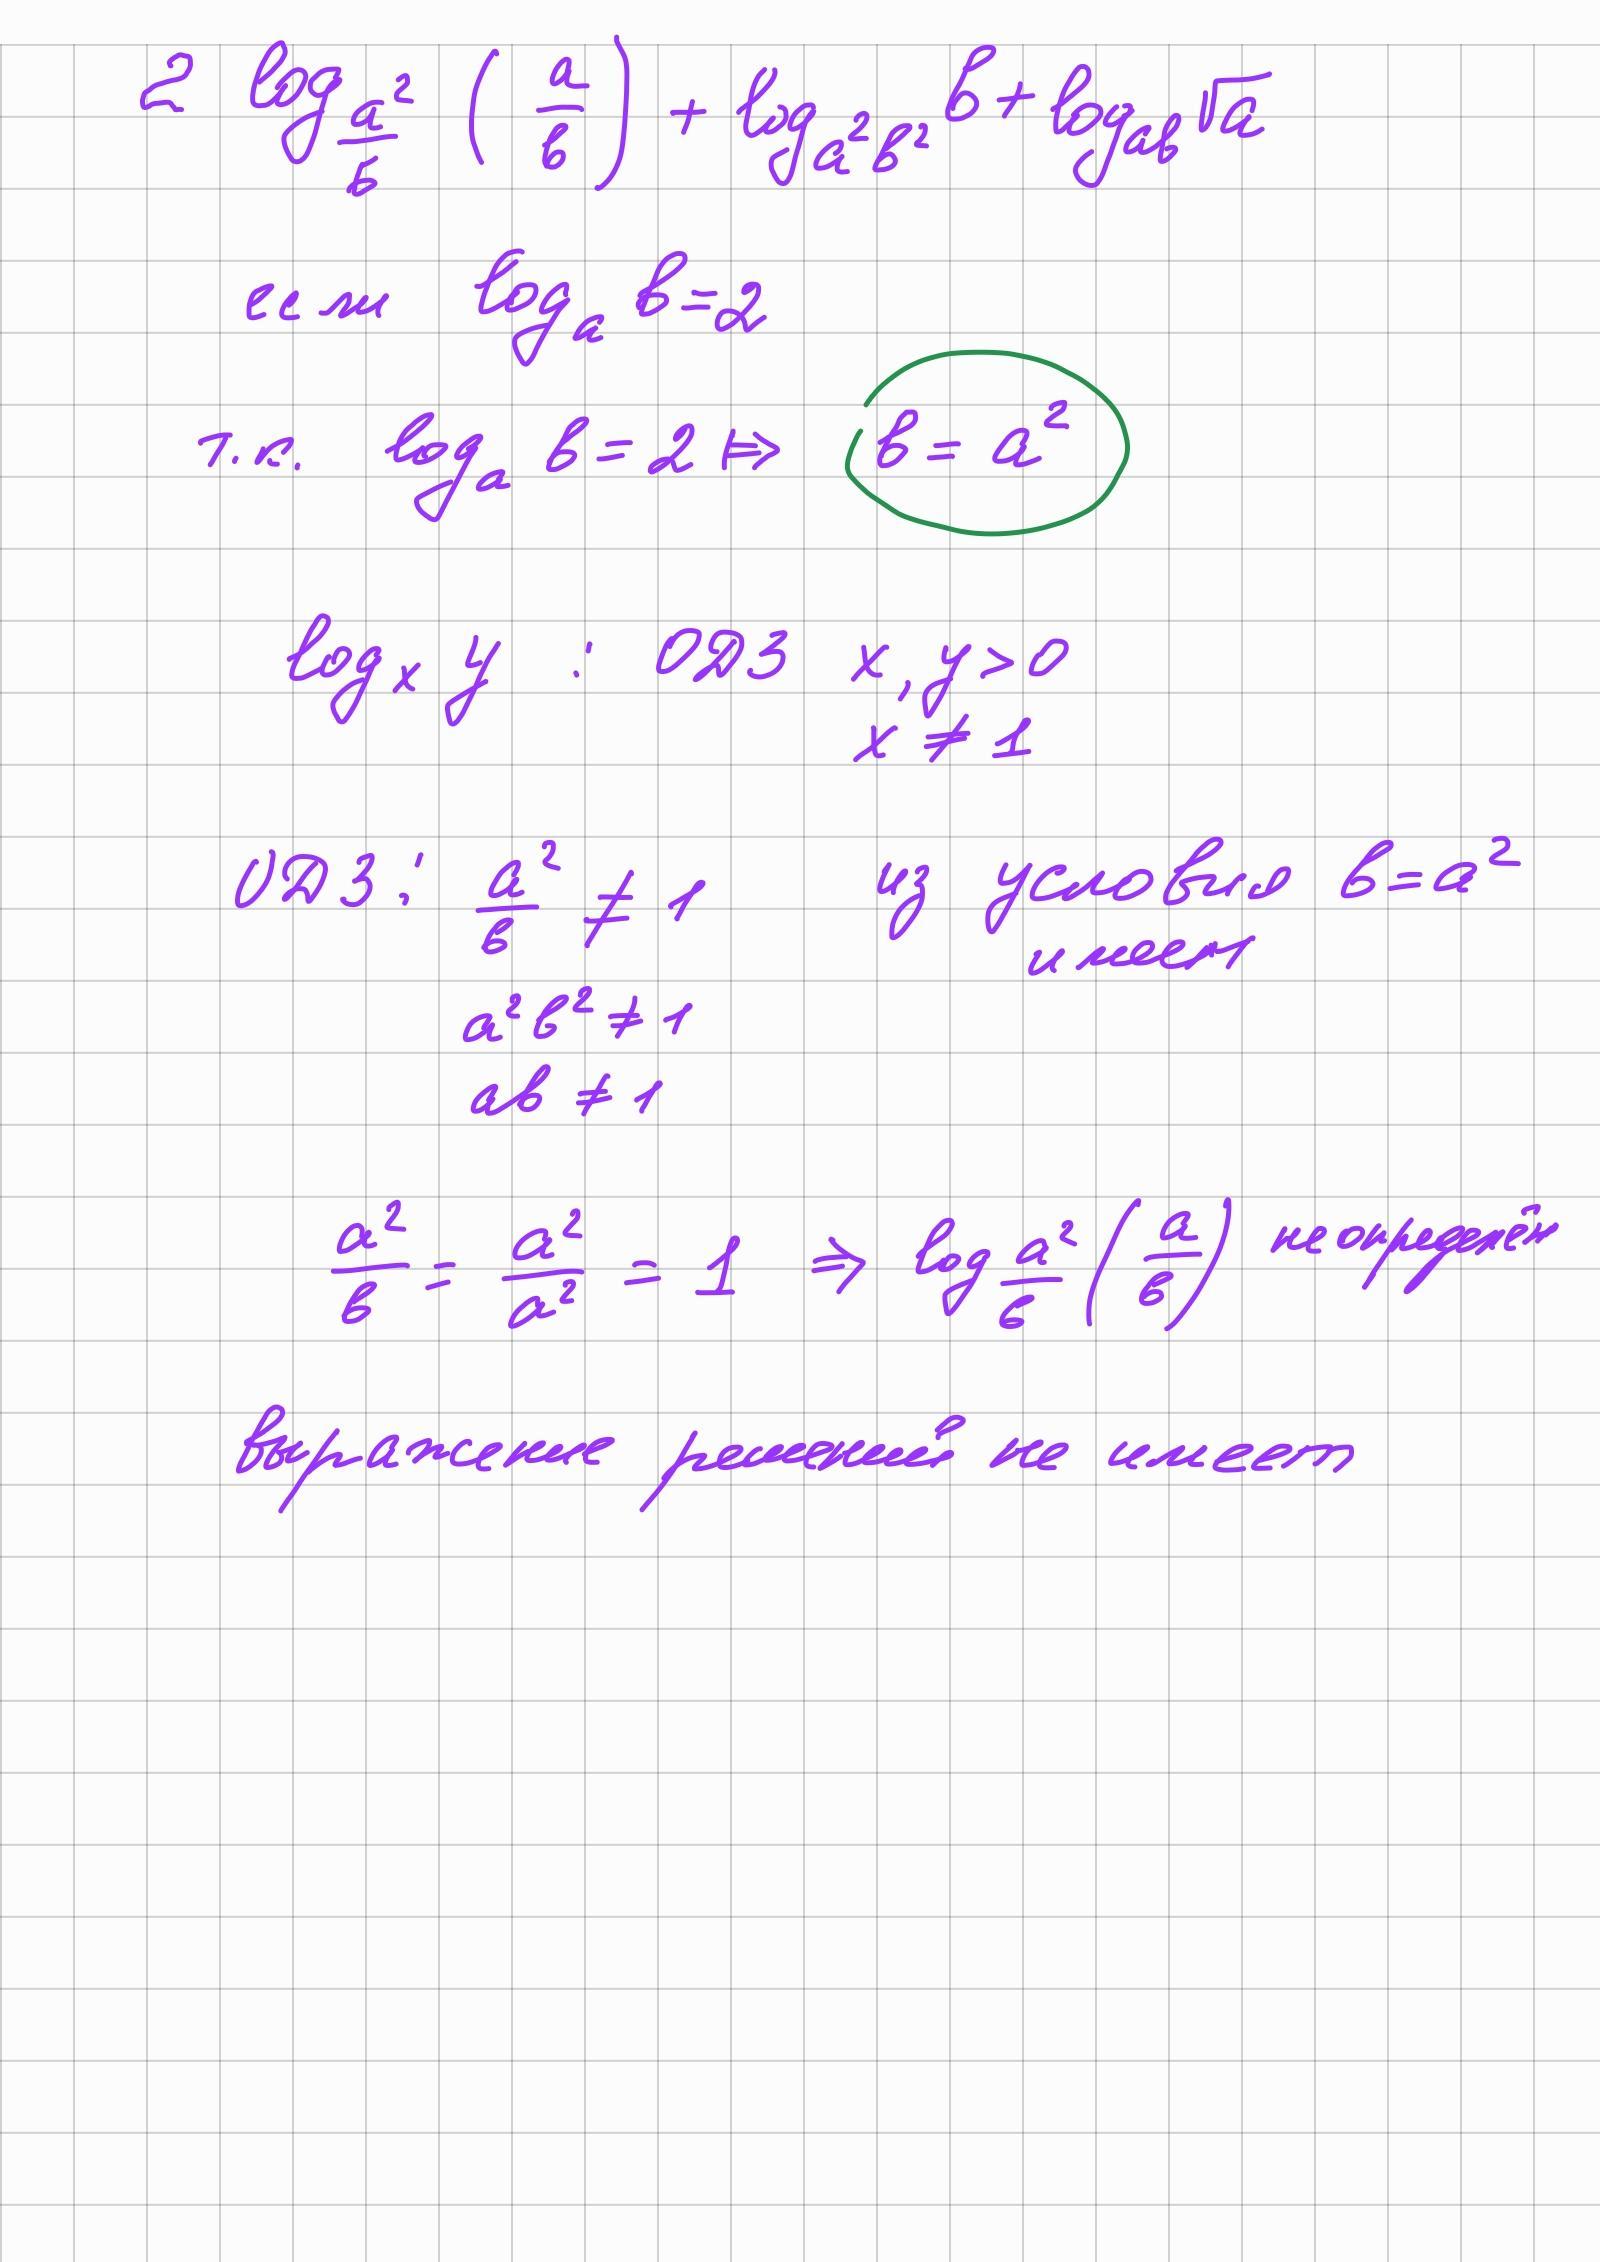 2 log_{a²/b} (a/b) + log_{a²b²} b + log_{ab} √a
если log_a b = 2
т.к. log_a b = 2 ⇔ b = a²
log_x y : ОДЗ x, y > 0
x ≠ 1
ОДЗ: a²/b ≠ 1 из условия b = a²
имеем
a²b² ≠ 1
ab ≠ 1
a²/b = a²/a² = 1 ⇒ log_{a²/b} (a/b) неопределён
выражение решений не имеет